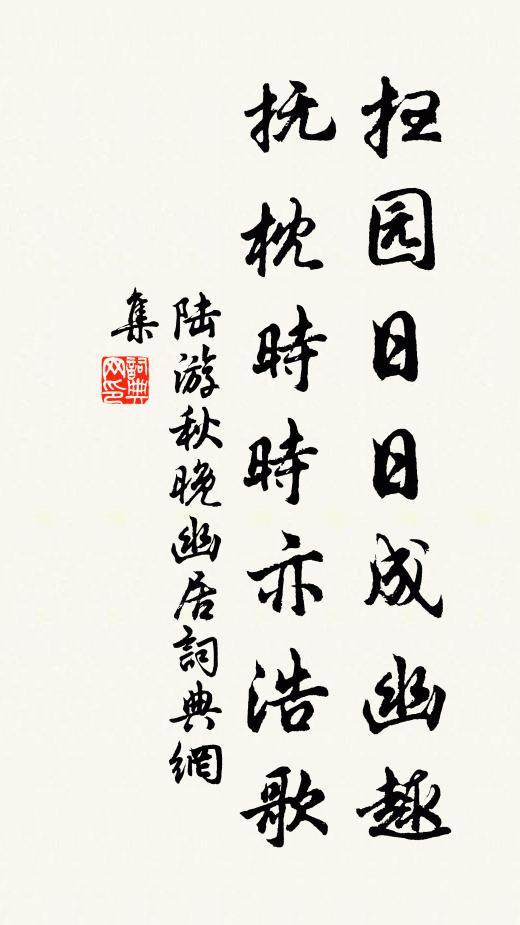 扫园日日成幽趣
抚枕時時亦浩歌
陆游秋晚幽居詞典網
集
詞典
网印